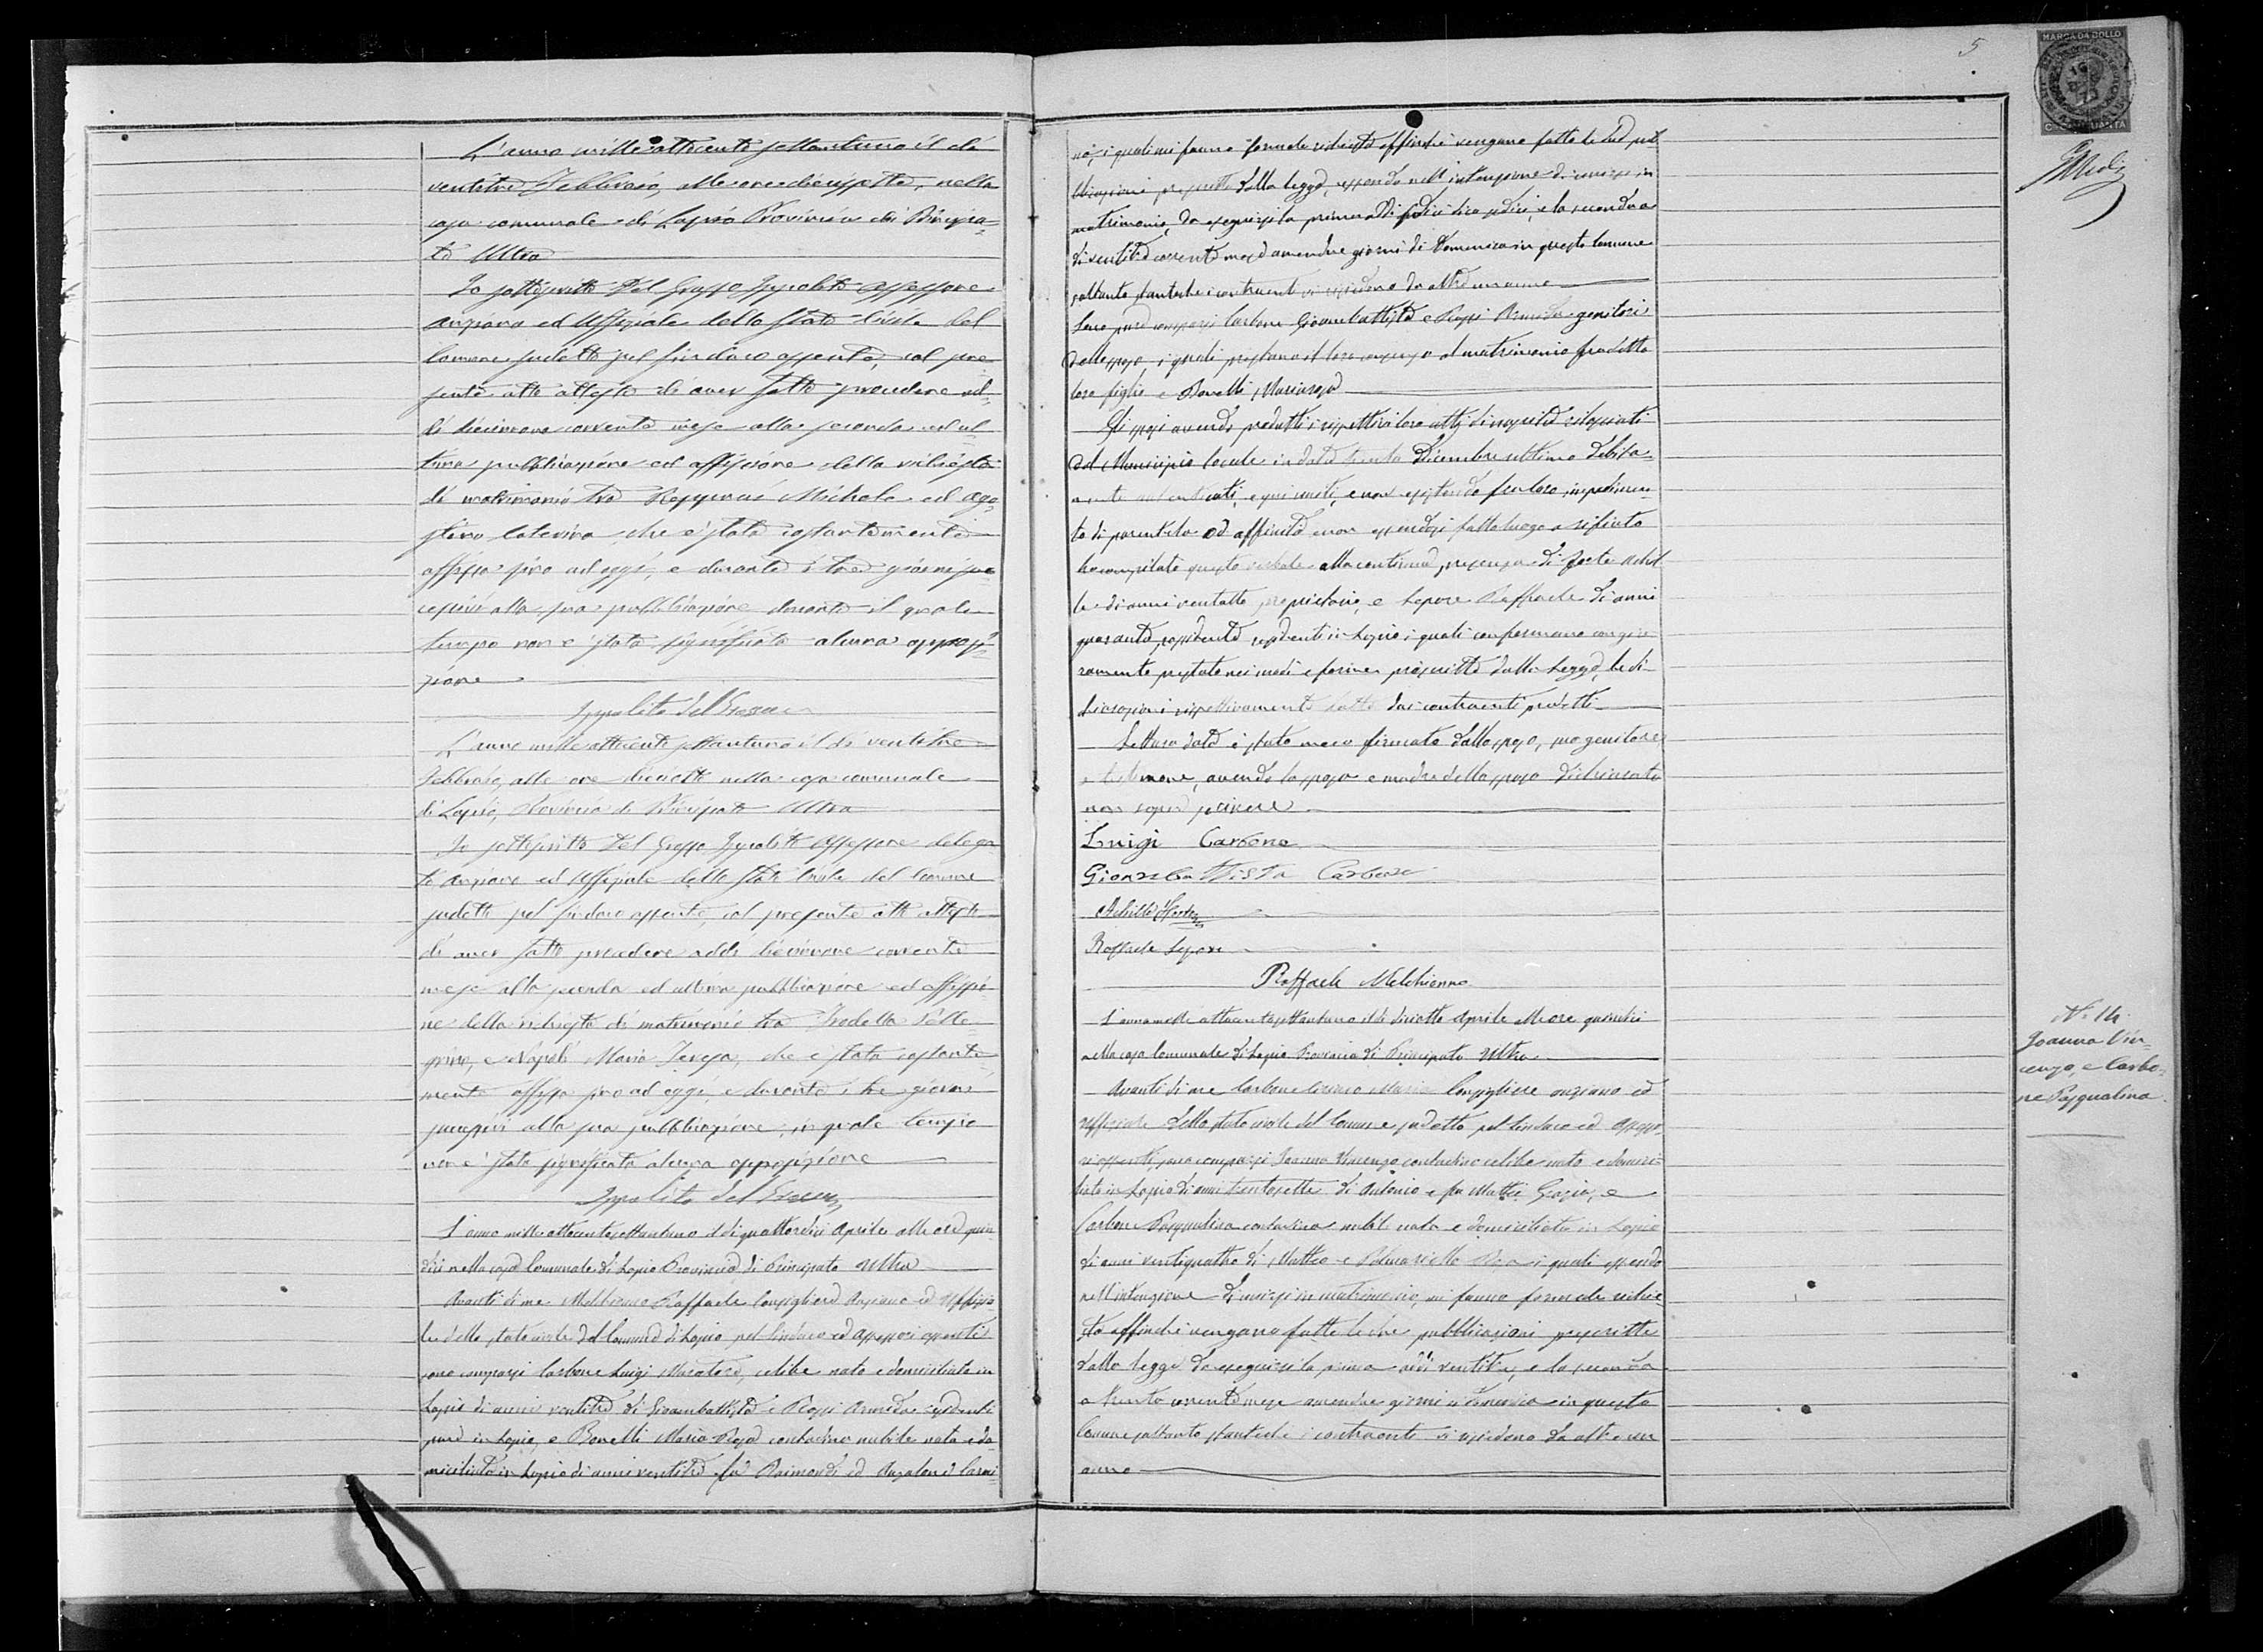 L'anno mille ottocento settantuno il dì
ventitre Febbraio, alle ore diciassette, nella
casa comunale di Lapio Provincia di Principa=
to Ultra
Io sottoscritto Del Grosso Ippolito assessore
anziano ed Uffiziale dello Stato Civile del
Comune sudetto pel Sindaco assente, col pre=
sente atto attesto di aver fatto procedere ad=
dì diecinove corrente mese alla seconda ed ul=
tima pubblicazione ed affissione della richiesta
di matrimonio tra Michele ed Ago=
stino Caterina, che è stata costantemente
affissa sino ad oggi, e durante i tre giorni suc=
cessivi alla sua pubblicazione durante il quale
tempo non è stata significata alcuna opposi=
zione
Ippolito del Grosso
L'anno mille ottocento settantuno il dì ventitre
Febbraio, alle ore dieciotto nella casa comunale
di Lapio, Provincia di Principato Ultra
Io sottoscritto Del Grosso Ippolito assessore delega
to anziano ed Uffiziale dello Stato Civile del Comune
sudetto pel Sindaco assente, col presente atto attesto
di aver fatto procedere addì diecinove corrente
mese alla seconda ed ultima pubblicazione ed affissio=
ne della richiesta di matrimonio tra Pelle=
grino, e Napoli Maria Teresa, che è stata costante=
mente affissa sino ad oggi, e durante i tre giorni
successivi alla sua pubblicazione, in quale tempo
non è stata significata alcuna opposizione
Ippolito del Grosso
L'anno mille ottocento settantuno il dì quattordici Aprile alle ore quin
dici nella casa Comunale di Lapio Provincia di Principato Ultra
Avanti di me Melchionno Raffaele Consigliere Anziano ed Uffizia
le dello stato civile del Comune di Lapio pel Sindaco ed assessori assenti
sono comparsi Carbone Luigi Muratore, celibe nato e domiciliato in
Lapio di anni ventitre di Giovambattista e Rossi residenti
pure in Lapio, e Bonelli Maria Rosa contadina nubile nata e do
miciliata in Lapio di anni ventitre fu Raimondo ed Carmi
5
MARCA DA BOLLO
na, i quali mi fanno formale richiesta affinchè vengano fatte le due pub
blicazioni prescritte dalla legge, essendo nell'intenzione di unirsi in
matrimonio, da eseguirsi la prima addì sedici, e la seconda a
dì ventitre corrente mese amendue giorni di Domenica in questo Comune
soltanto stantechè i contraenti vi risiedono da oltre un anno
Sono pure comparsi Carbone Giovambattista e Rossi genitori
dello sposo, i quali prestano il loro consenso al matrimonio fra detto
loro figlio e Bonelli Mariarosa
Gli sposi avendo prodotti i rispettivi loro atti di nascita rilasciati
dal Municipio locale in data trenta Dicembre ultimo debita=
mente autenticati, e qui uniti, e non esistendo fra loro impedimen=
to di parentela od affinità e non essendosi fatto luogo a rifiuto
ho compilato questo verbale alla continua presenza di Forte Achil
le di anni ventotto proprietario, e Lepore Raffaele di anni
quaranta, residenti in Lapio i quali confermano con giu
ramento prestato nei modi e forme prescritte dalla Legge, le di
chiarazioni rispettivamente fatte dai contraenti predetti
Lettura data è stato meco firmato dallo sposo, suo genitore
e testimone, avendo la sposa e madre dello sposo dichiarato
non sapere scrivere
Luigi Carbone
Giovanba ttista Carbone
Achille Forte
Raffaele Lepore
Raffaele Melchionno
L'anno mille ottocento settantuno il dì diciotto Aprile alle ore quindici
nella casa Comunale di Lapio Provincia di Principato Ultra
Avanti di me Carbone Maria Consigliere anziano ed
Uffiziale dello stato civile del Comune sudetto pel Sindaco ed Assesso=
ri assenti, sono comparsi Joanna Vincenzo contadino celibe nato e domici
liato in Lapio di anni trentasette di Antonio e fu Mattia Grazia, e
Carbone Pasqualina contadina nubile nata e domiciliata in Lapio
di anni ventiquattro di Matteo e Palmariello Rosa i quali essendo
nell'intenzione di unirsi in matrimonio, mi fanno formale richie=
sta affinchè vengano fatte le due pubblicazioni prescritte
dalla legge da eseguirsi la prima addì ventitre, e la seconda
a trenta corrente mese amendue giorni di Domenica in questo
Comune soltanto stantechè i contraenti vi risiedono da oltre un
anno
N.° 14.
Joanna Vin=
cenzo, e Carbo=
ne Pasqualina.